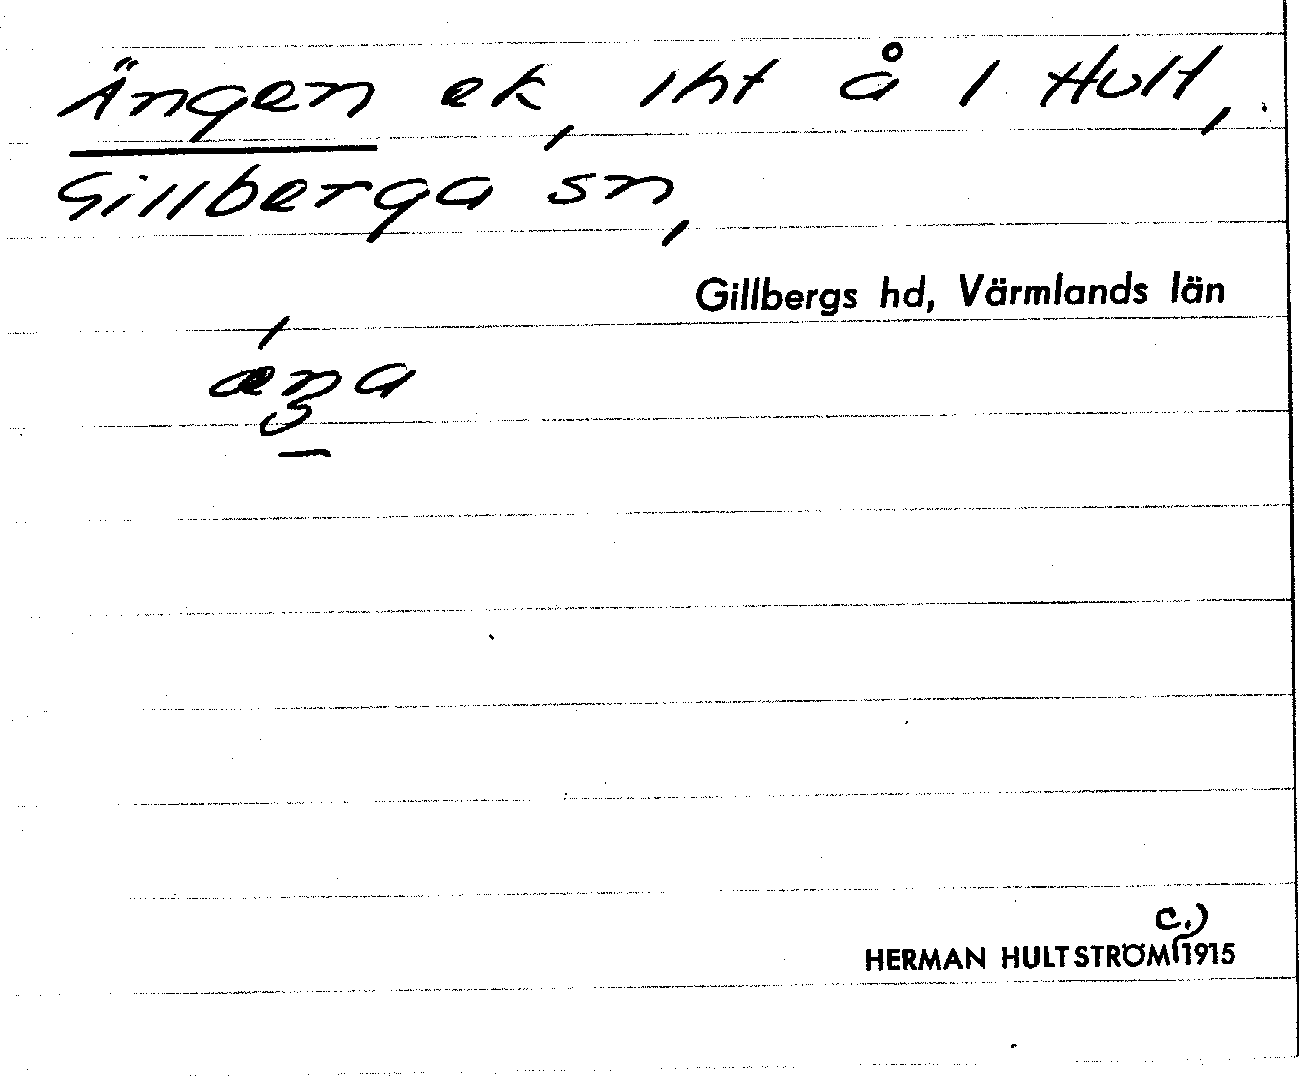 Ängen ek, iht å 1 Hult,
Gillberga sn,
Gillbergs hd, Värmlands län
c.)
HERMAN HULTSTRÖM 1915